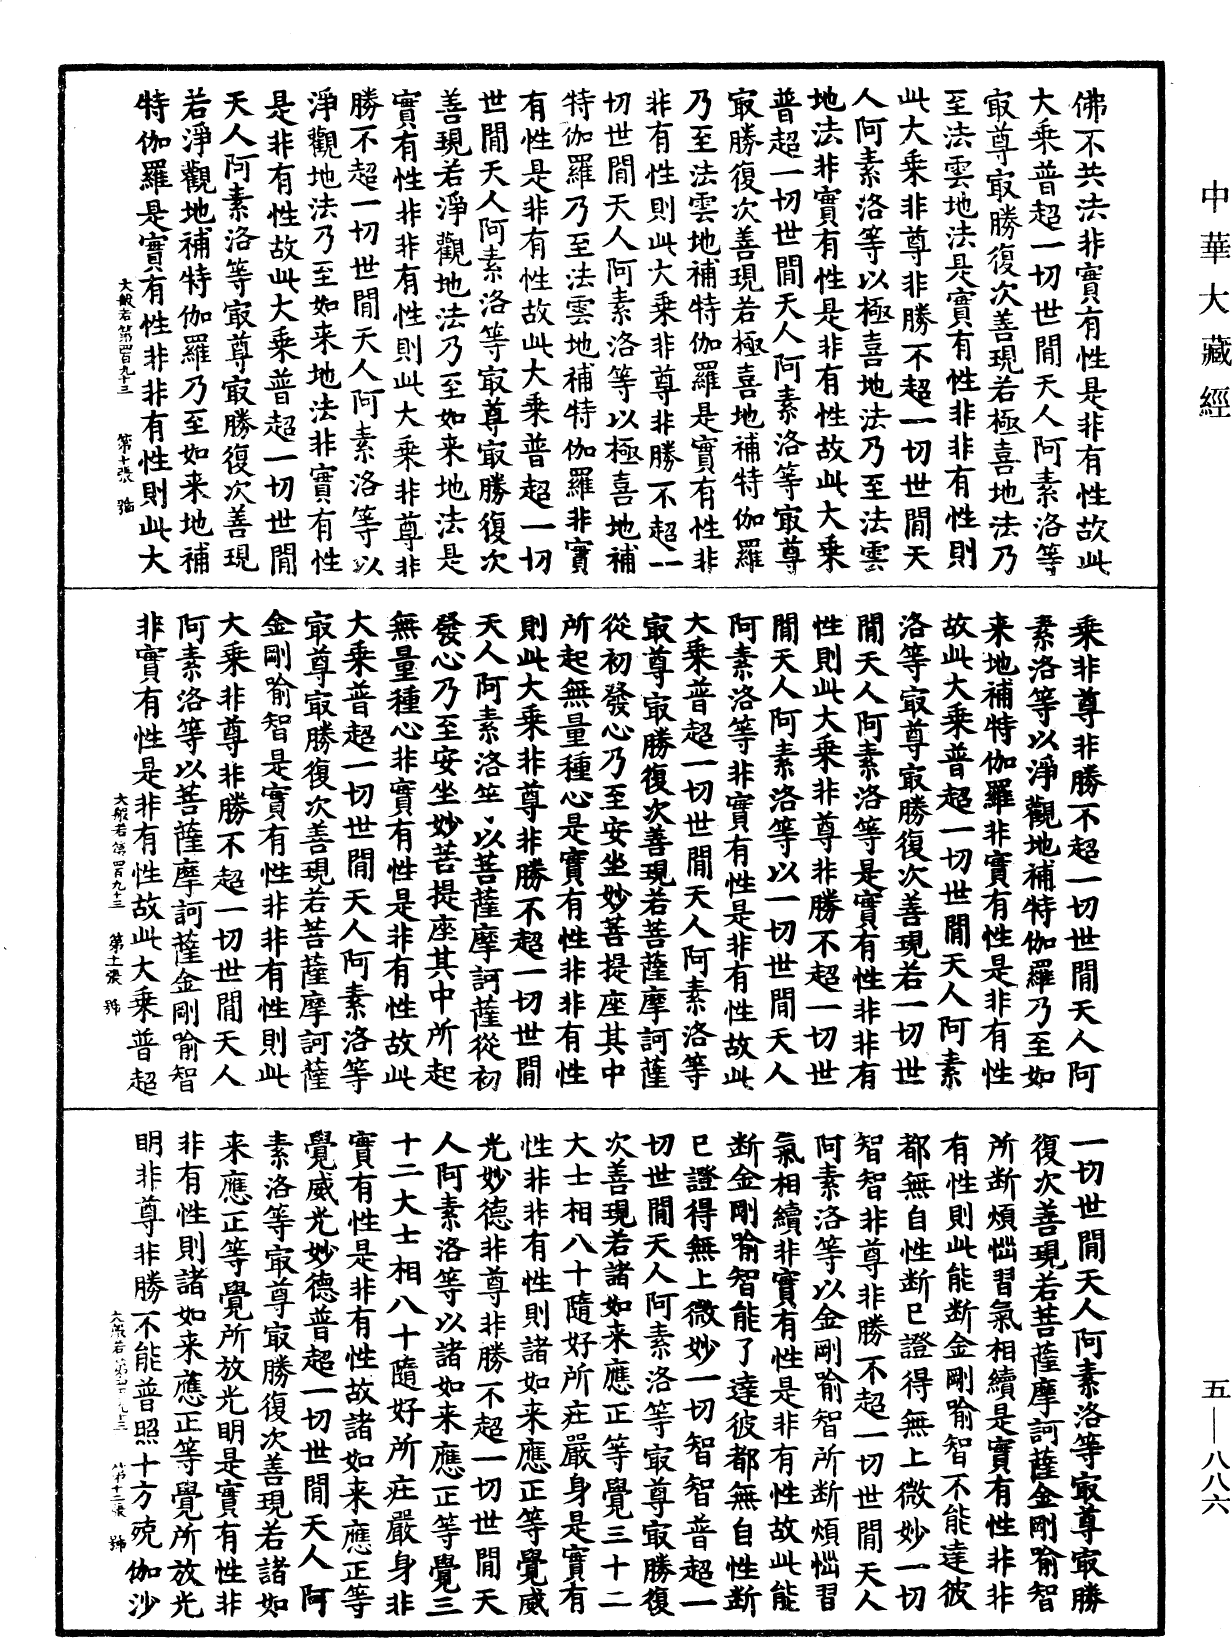 中華大藏經
佛不共法非實有性是非有性故此
大乗普超一切世間天人阿素洛等
㝡尊㝡勝復次善現若極喜地法乃
至法雲地法是實有性非非有性則
此大乗非尊非勝不超一切世間天
人阿素洛等以極喜地法乃至法雲
地法非實有性是非有性故此大乗
普超一切世間天人阿素洛等㝡尊
㝡勝復次善現若極喜地補特伽羅
乃至法雲地補特伽羅是實有性非
非有性則此大乗非尊非勝不超一
切世間天人阿素洛等以極喜地補
特伽羅乃至法雲地補特伽羅非實
有性是非有性故此大乗普超一切
世間天人阿素洛等㝡尊㝡勝復次
善現若淨觀地法乃至如来地法是
實有性非非有性則此大乗非尊非
勝不超一切世間天人阿素洛等以
淨觀地法乃至如来地法非實有性
是非有性故此大乗普超一切世間
天人阿素洛等㝡尊㝡勝復次善現
若淨觀地補特伽羅乃至如来地補
特伽羅是實有性非非有性則此大
大般若第四百九十三 第十張 號
乗非尊非勝不超一切世間天人阿
素洛等以淨觀地補特伽羅乃至如
来地補特伽羅非實有性是非有性
故此大乗普超一切世間天人阿素
洛等㝡尊㝡勝復次善現若一切世
間天人阿素洛等是實有性非非有
性則此大乗非尊非勝不超一切世
間天人阿素洛等以一切世間天人
阿素洛等非實有性是非有性故此
大乗普超一切世間天人阿素洛等
㝡尊㝡勝復次善現若菩薩摩訶薩
從初發心乃至安坐妙菩提座其中
所起無量種心是實有性非非有性
則此大乗非尊非勝不超一切世間
天人阿素洛等以菩薩摩訶薩從初
發心乃至安坐妙菩提座其中所起
無量種心非實有性是非有性故此
大乗普超一切世間天人阿素洛等
㝡尊㝡勝復次善現若菩薩摩訶薩
金剛喻智是實有性非非有性則此
大乗非尊非勝不超一切世間天人
阿素洛等以菩薩摩訶薩金剛喻智
非實有性是非有性故此大乗普超
大般若第四百九十三 第十一張 號
一切世間天人阿素洛等㝡尊㝡勝
復次善現若菩薩摩訶薩金剛喻智
所断煩惱習氣相續是實有性非非
有性則此能断金剛喻智不能達彼
都無自性断已證得無上微妙一切
智智非尊非勝不超一切世間天人
阿素洛等以金剛喻智所断煩惱習
氣相續非實有性是非有性故此能
断金剛喻智能了達彼都無自性断
已證得無上微妙一切智智普超一
切世間天人阿素洛等㝡尊㝡勝復
次善現若諸如来應正等覺三十二
大士相八十隨好所莊嚴身是實有
性非非有性則諸如来應正等覺威
光妙德非尊非勝不超一切世間天
人阿素洛等以諸如来應正等覺三
十二大士相八十隨好所莊嚴身非
實有性是非有性故諸如来應正等
覺威光妙德普超一切世間天人阿
素洛等㝡尊㝡勝復次善現若諸如
来應正等覺所放光明是實有性非
非有性則諸如来應正等覺所放光
明非尊非勝不能普照十方殑伽沙
大般若第四百九十三 第十二張 號
五—八八六